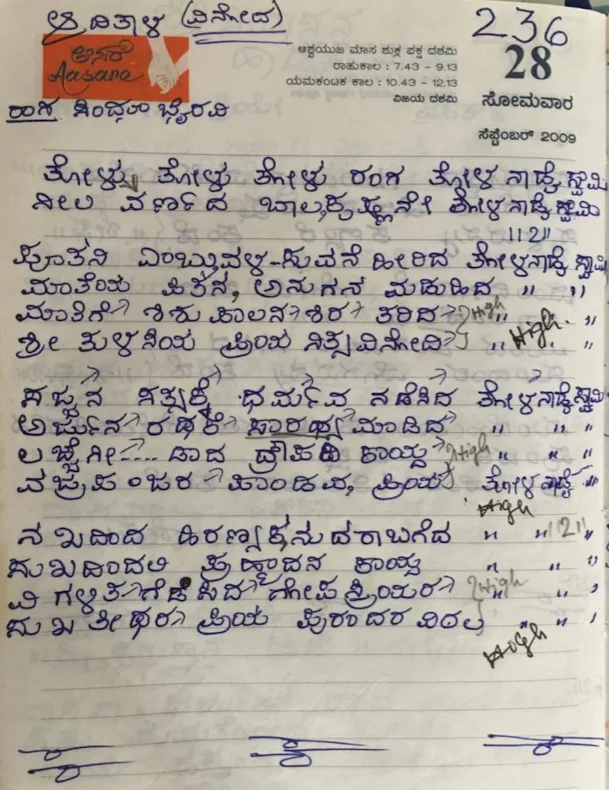 ಆದಿತಾಳ (ವಿನೋದ) 236
ಆಸರೆ
Aasare
ಆಶ್ವಯುಜ ಮಾಸ ಶುಕ್ಲ ಪಕ್ಷ ದಶಮಿ
ರಾಹುಕಾಲ : 7.43 - 9.13
ಯಮಕಂಟಕ ಕಾಲ : 10.43 - 12.13
ವಿಜಯ ದಶಮಿ
28
ಸೋಮವಾರ
ಸೆಪ್ಟೆಂಬರ್ 2009
ರಾಗ ಸಿಂಧೂ ಭೈರವಿ
ತೋಳು ತೋಳು ತೋಳು ರಂಗ ತೋಳನಾಡೈ ಸ್ವಾಮಿ
ನೀಲ ವರ್ಣದ ಬಾಲಕೃಷ್ಣನೇ ತೋಳನಾಡೈ ಸ್ವಾಮಿ
||2||
ಪೂತನಿ ಎಂಬುವಳ ಹೀರಿದ ತೋಳನಾಡೈ ಸ್ವಾಮಿ
ಮಾತೆಯ ಹಿತನ, ಅನುಗನ ಮಡುಹಿದ " "
ಮಾತಿಗೆ ಶಿಶುಪಾಲನ ಶಿರ ತರಿದ High " "
ಶ್ರೀ ತುಳಸಿಯ ಪ್ರಿಯ ನಿತ್ಯವಿನೋದಿ " High. "
ಸಜ್ಜನ ಸತ್ಯಕ್ಕೆ ಧರ್ಮವ ನಡೆಸಿದ ತೋಳನಾಡೈ ಸ್ವಾಮಿ
ಅರ್ಜುನ ರಥಕೆ ಸಾರಥ್ಯ ಮಾಡಿದ " " "
ಲಜ್ಜೆಗೀ.... ಡಾದ ದ್ರೌಪದಿ ಕಾಯ್ದ High " "
ವಜ್ರಪಂಜರ ಪಾಂಡವ, ಪ್ರಿಯ ತೋಳನಾಡೈ "
High
ನಖದಿಂದ ಹಿರಣ್ಯಕನುದರಾಬಗೆದ " " ||2||
ಸುಖದಿಂದಲಿ ಪ್ರಹ್ಲಾದನ ಕಾಯ್ದ " " "
ಗೋಪಸ್ತ್ರೀಯರ High " "
ಸುಖತೀರ್ಥರ ಪ್ರಿಯ ಪುರಂದರ ವಿಠಲ " " "
High